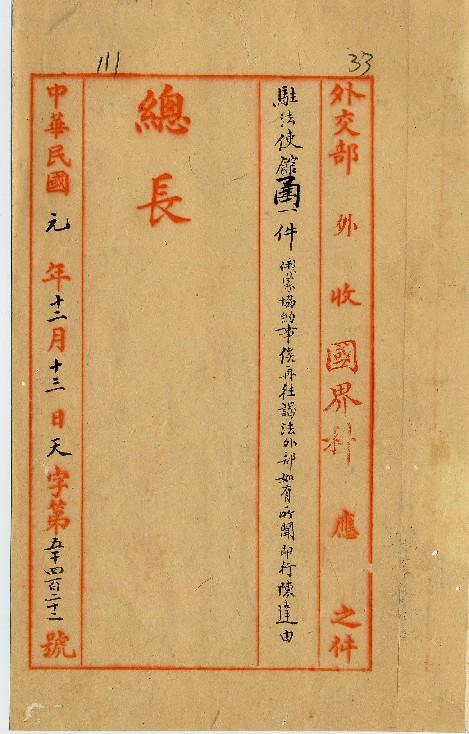 111
33
外交部 外 收 國界科 應 之件
駐法使館函一件 俄蒙協約事俟再往謁法外部如有所聞即行陳達由
總長
中華民國元年十二月十三日天字第五千四百二十二號